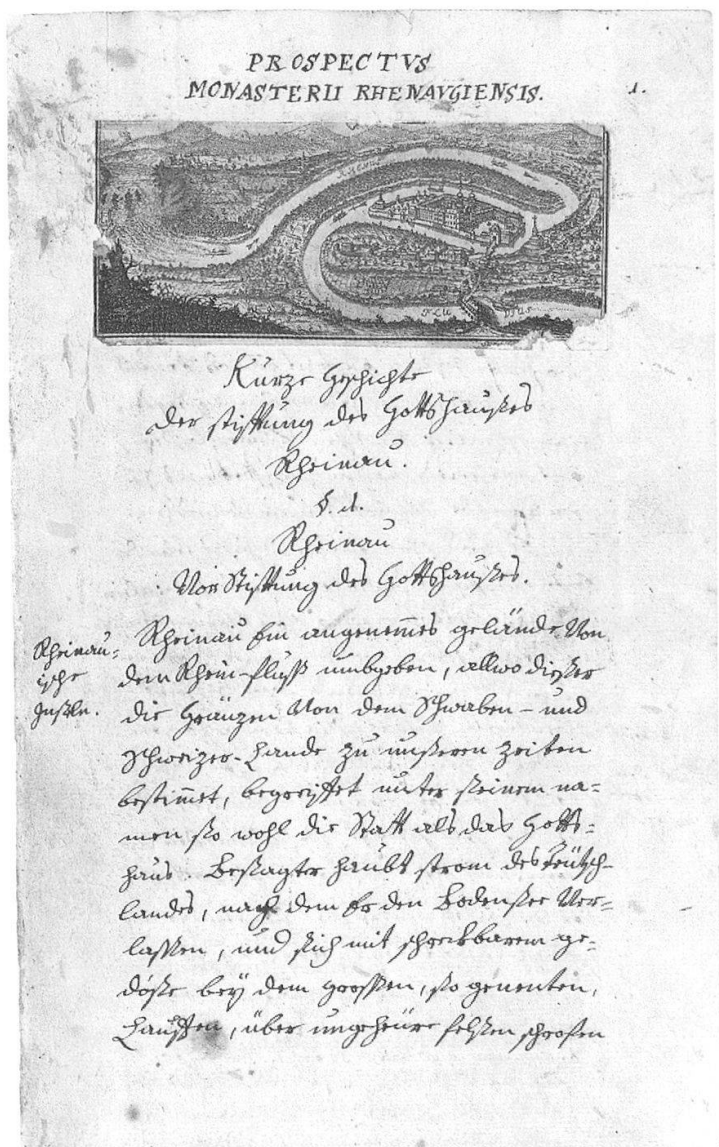 PROSPECTVS
MONASTERII RHENAVGIENSIS.
1.
FLU VIUS
Kurze Geschichte
der stifftung des Gottshaußes
Rheinau.
§. 1.
Rheinau
Vor Stifftung des Gottshaußes.
Rheinau-
ische
Inßlen.
Rheinau Ein angenem̄es gelände Von
dem Rhein-fluß umbgeben, allwo dießer
die Gränzen Von dem Schwaben- und
Schweizer-Lande zu unßeren zeiten
bestim̄et, begreiffet unter ßeinem na-
men ßo wohl die Statt als das Gotts-
haus. Beßagter haubt strom des Teütsch-
landes, nach dem Er den Bodenßee Ver-
laßßen, und ßich mit schreckbarem ge-
dößte bey dem großßen, ßo genenten,
Lauffen, über ungeheüre felßen schrofen